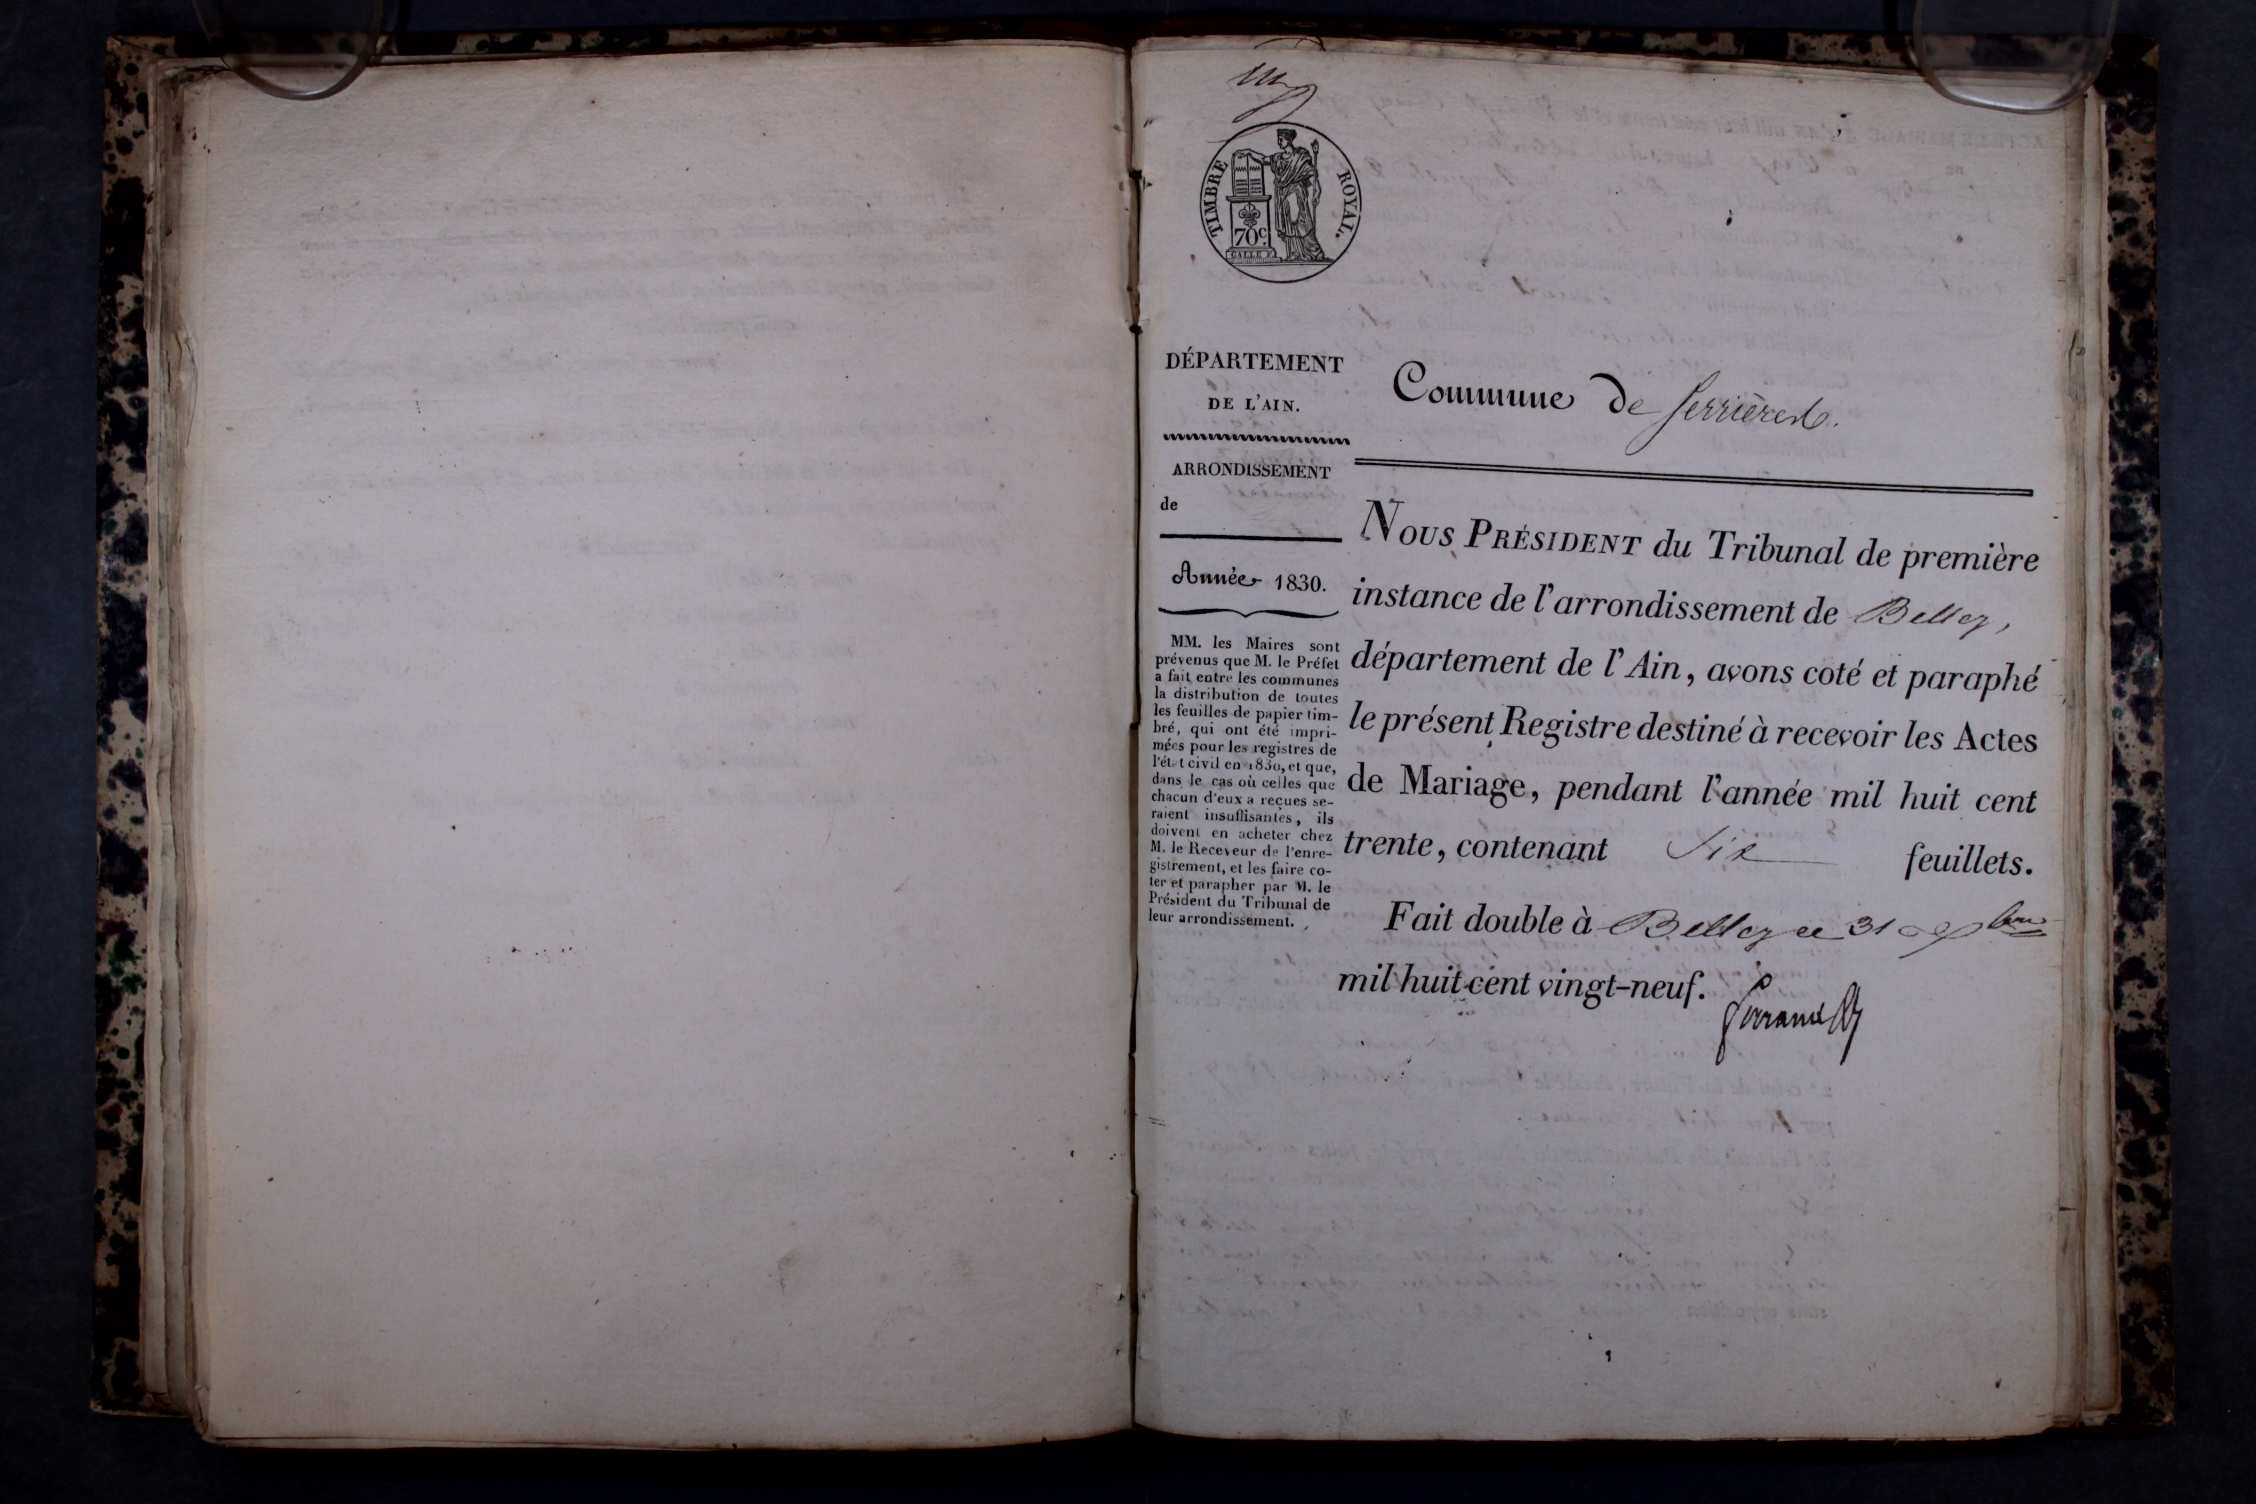 TIMBRE ROYAL.
70c.
DÉPARTEMENT
DE L'AIN.
Commune de Serrières.
ARRONDISSEMENT
de
Année 1830.
MM. les Maires sont
prévenus que M. le Préfet
a fait entre les communes
la distribution de toutes
les feuilles de papier tim-
bré, qui ont été impri-
mées pour les registres de
l'état civil en 1830, et que,
dans le cas où celles que
chacun d'eux a reçues se-
raient insuffisantes, ils
doivent en acheter chez
M. le Receveur de l'enre-
gistrement, et les faire co-
ter et parapher par M. le
Président du Tribunal de
leur arrondissement.
NOUS PRÉSIDENT du Tribunal de première
instance de l'arrondissement de Belley,
département de l'Ain, avons coté et paraphé
le présent Registre destiné à recevoir les Actes
de Mariage, pendant l'année mil huit cent
trente, contenant Six feuillets.
Fait double à Belley ce 31 Xbre
mil huit cent vingt-neuf.